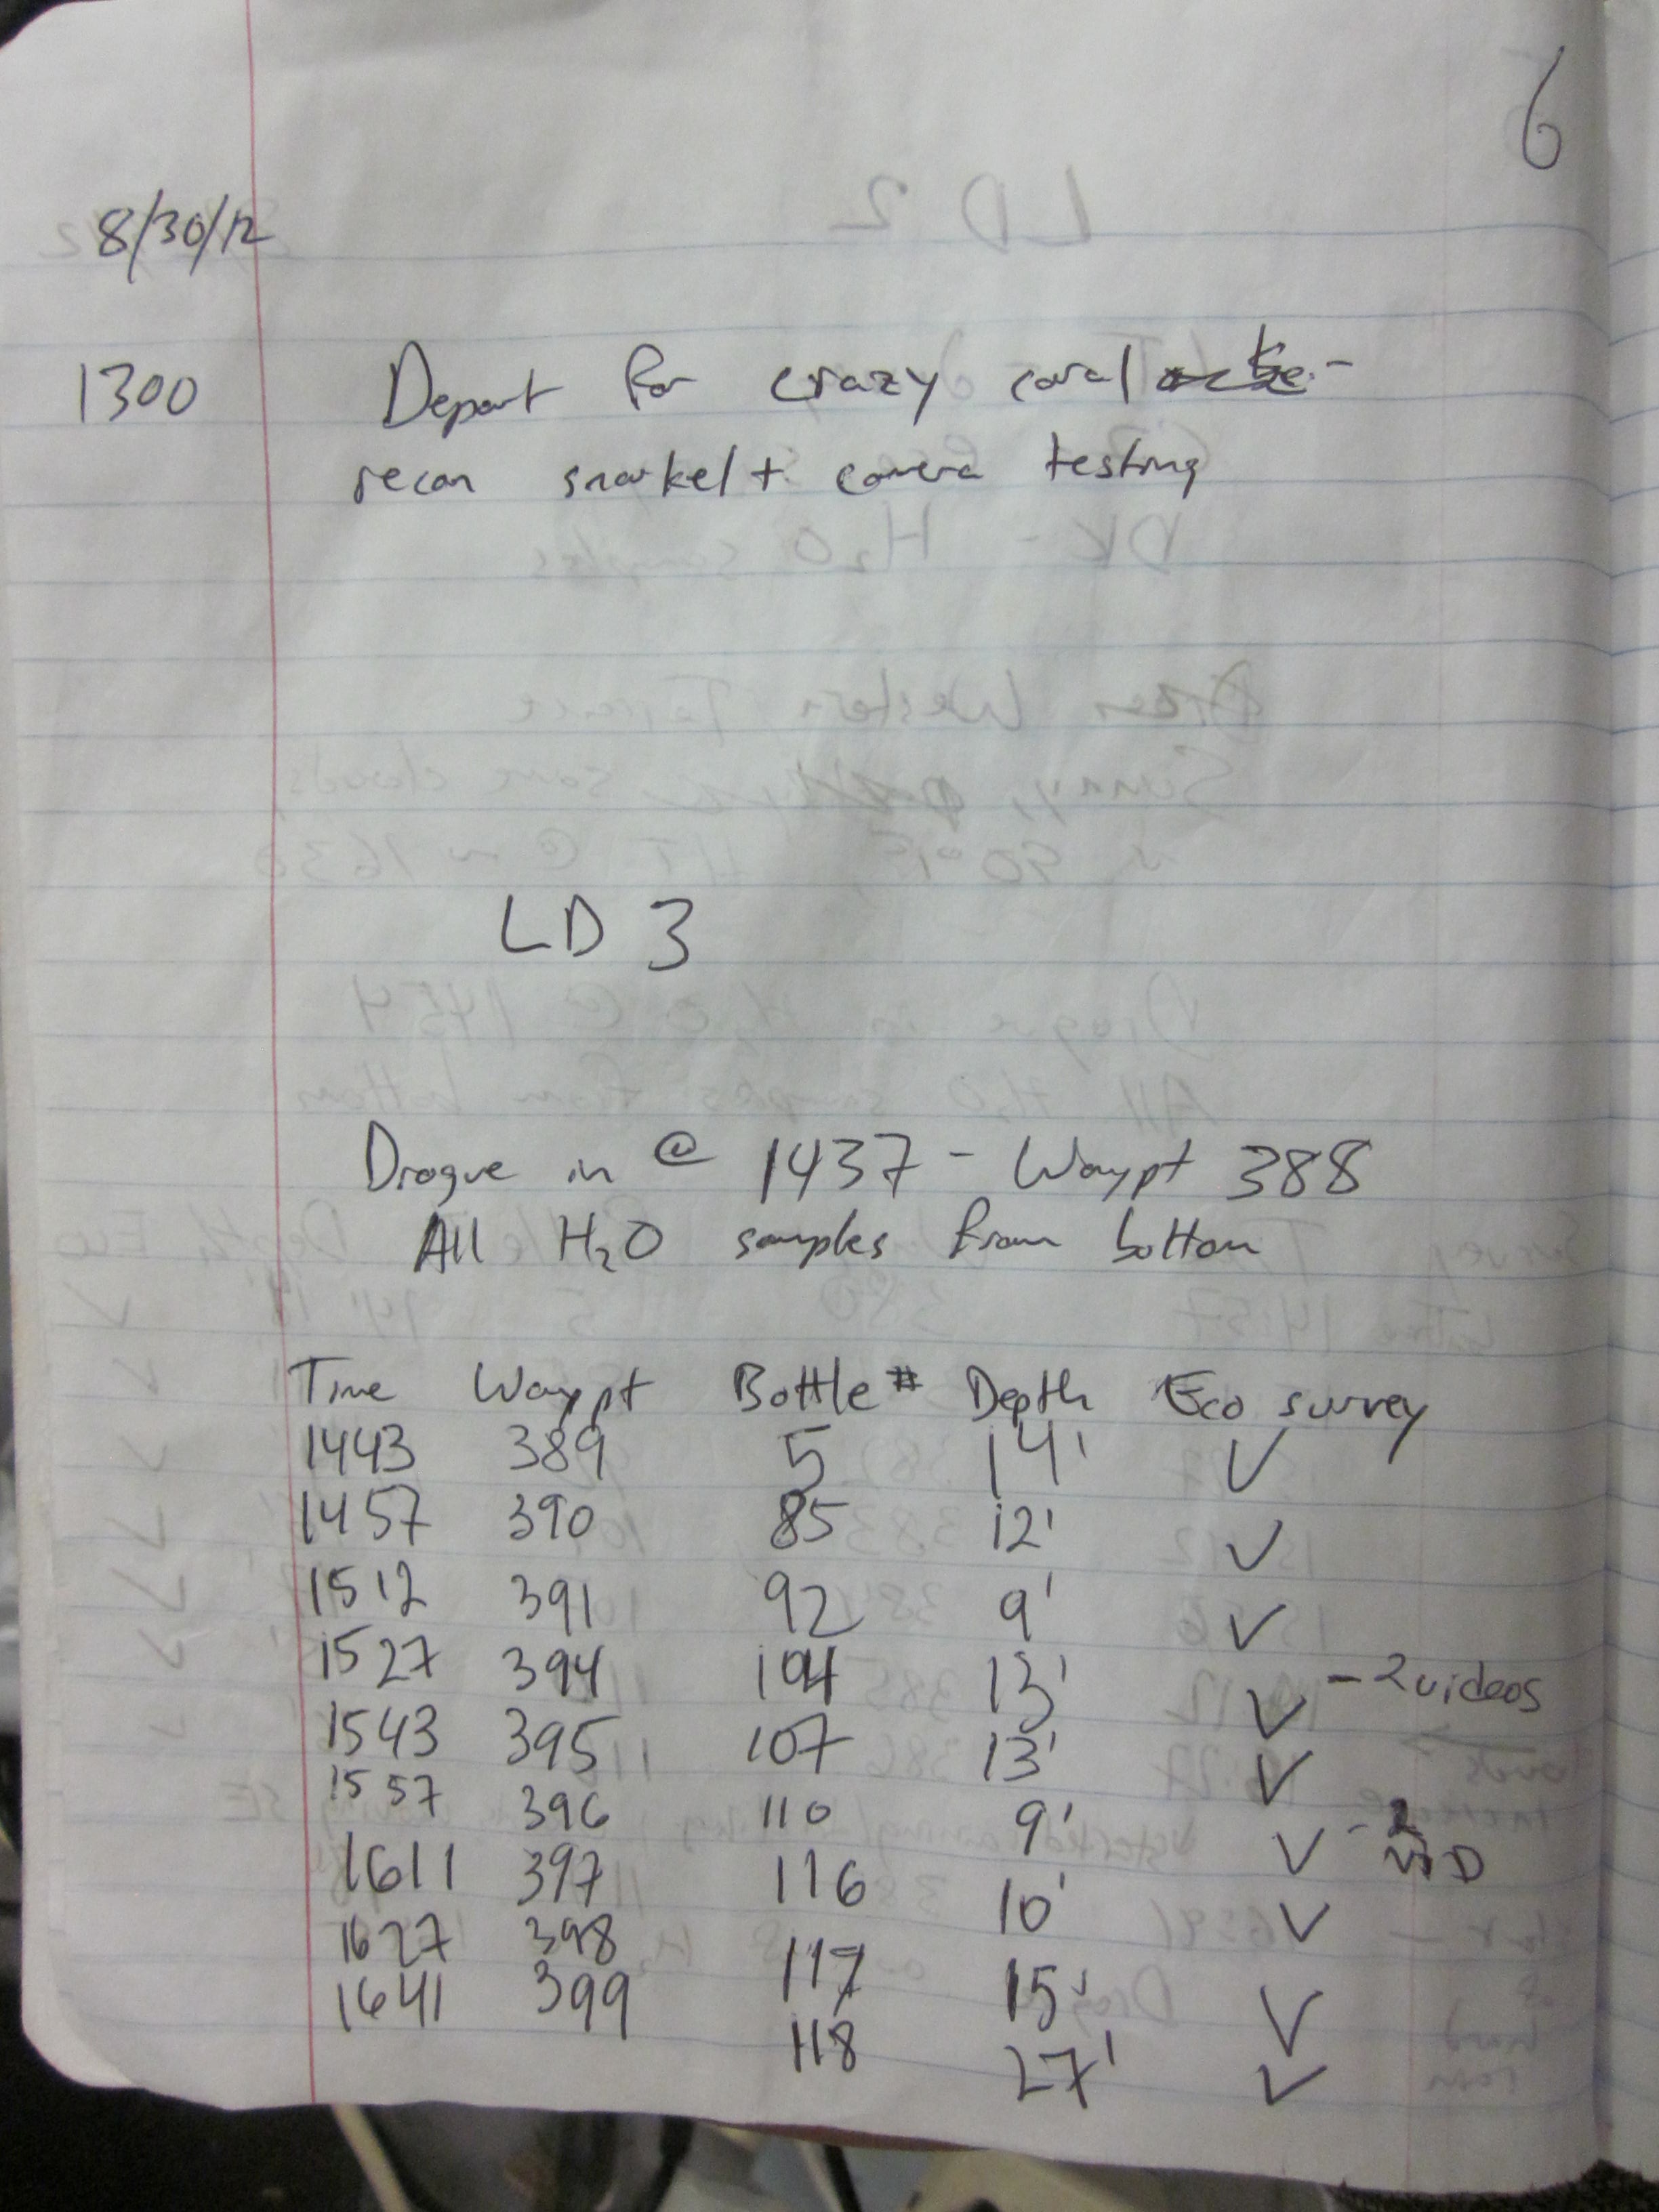 6
8/30/12
1300 Depart for crazy coral
recon snorkel + camera testing
LD 3
Drogue in @ 1437 - Waypt 388
All H2O samples from bottom
Time Waypt Bottle # Depth Eco survey
1443 389 5 14' ✓
1457 390 85 12' ✓
1512 391 92 9' ✓
1527 394 104 13' ✓ - 2 videos
1543 395 107 13' ✓
1557 396 110 9' ✓ - 2 VID
1611 397 116 10' ✓
1627 398 117 15' ✓
1641 399 118 27' ✓